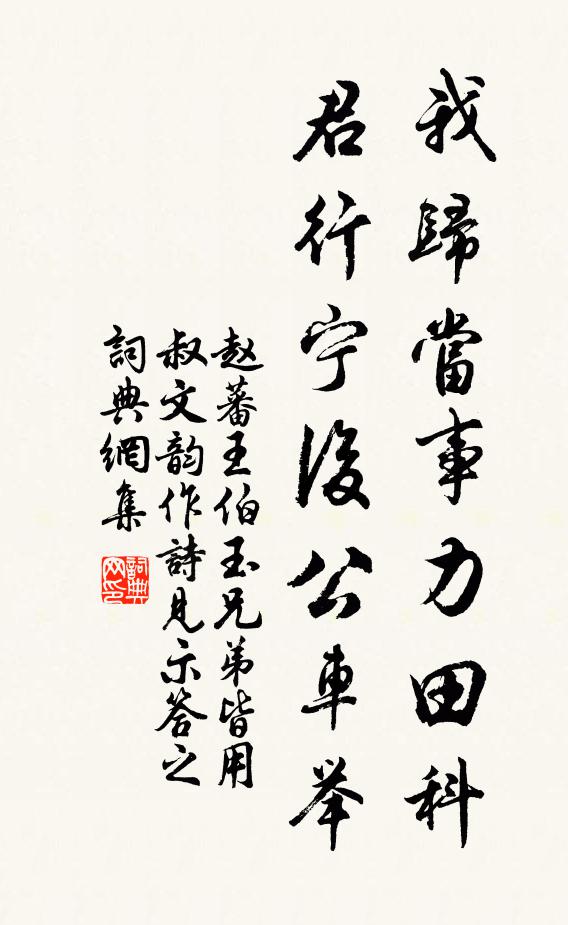 我歸當事力田科
君行宁復公車举
赵蕃王伯玉兄弟皆用
叔文韵作詩見示答之
詞典網集
詞典网印